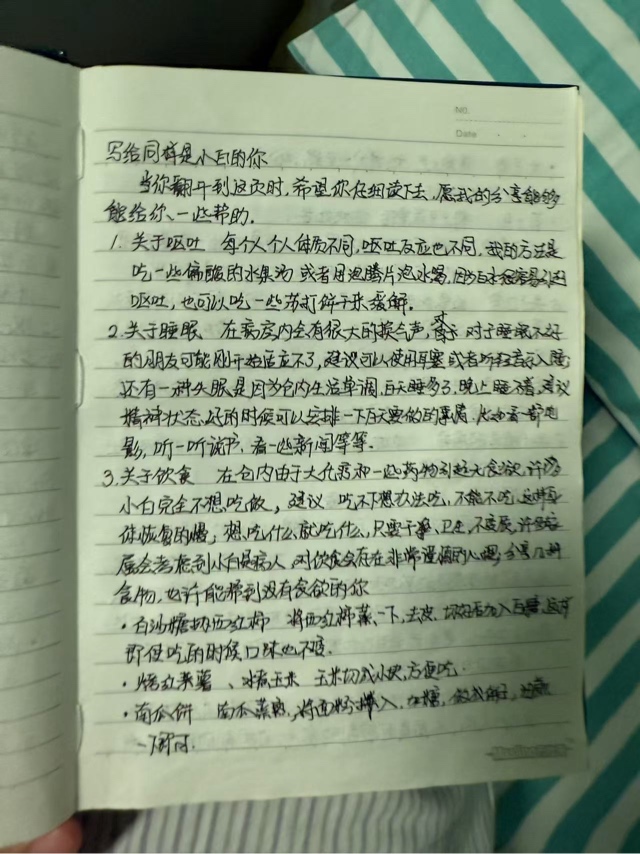 No.
Date
写给同样是小白的你
当你翻开到这页时,希望你仔细读下去,愿我的分享能够
能给你一些帮助.
1. 关于呕吐 每个人个人体质不同,呕吐反应也不同,我的方法是
吃一些偏酸的水果汤 或者用泡腾片泡水喝,因为白水很容易引起
呕吐,也可以吃一些苏打饼干来缓解.
2.关于睡眠 在病房内会有很大的换气声,对于睡眠不好
的朋友可能刚开始适应不了,建议可以使用耳塞或者听轻音乐入睡
还有一种失眠是因为仓内生活单调,白天睡多了,晚上睡不着,建议
精神状态好的时候可以安排一下白天要做的事情,比如看一部电
影,听一听说书,看一些新闻等等.
3.关于饮食 在仓内由于大化疗和一些药物引起无食欲,许多
小白完全不想吃饭,建议 吃不下想办法吃,不能不吃,这样身
体恢复的慢,想吃什么就吃什么,只要干净、卫生,不变质,许多家
属会考虑到小白是病人,对饮食会存在非常谨慎的心理,分享几种
食物,也许能帮到没有食欲的你
·白沙糖拌西红柿 将西红柿蒸一下,去皮,切好后加入白糖,这样
即使吃的时候口味也不变.
·烤红薯、水煮玉米 玉米切成小块,方便吃.
·南瓜饼 南瓜蒸熟,将面粉掺入,加糖,做成饼子,
一下即可.